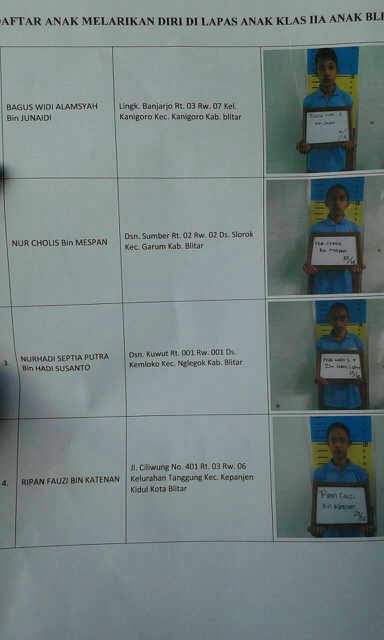 DAFTAR ANAK MELARIKAN DIRI DI LAPAS ANAK KLAS IIA ANAK BLI
BAGUS WIDI ALAMSYAH
Bin JUNAIDI
Lingk. Banjarjo Rt. 03 Rw. 07 Kel.
Kanigoro Kec. Kanigoro Kab. blitar
NUR CHOLIS Bin MESPAN
Dsn. Sumber Rt. 02 Rw. 02 Ds. Slorok
Kec. Garum Kab. Blitar
NUR CHOLIS
Bin MESPAN
3.
NURHADI SEPTIA PUTRA
Bin HADI SUSANTO
Dsn. Kuwut Rt. 001 Rw. 001 Ds.
Kemloko Kec. Nglegok Kab. Blitar
4.
RIPAN FAUZI BIN KATENAN
Jl. Ciliwung No. 401 Rt. 03 Rw. 06
Kelurahan Tanggung Kec. Kepanjen
Kidul Kota Blitar
RIPAN FAUZI
BIN KATENAN